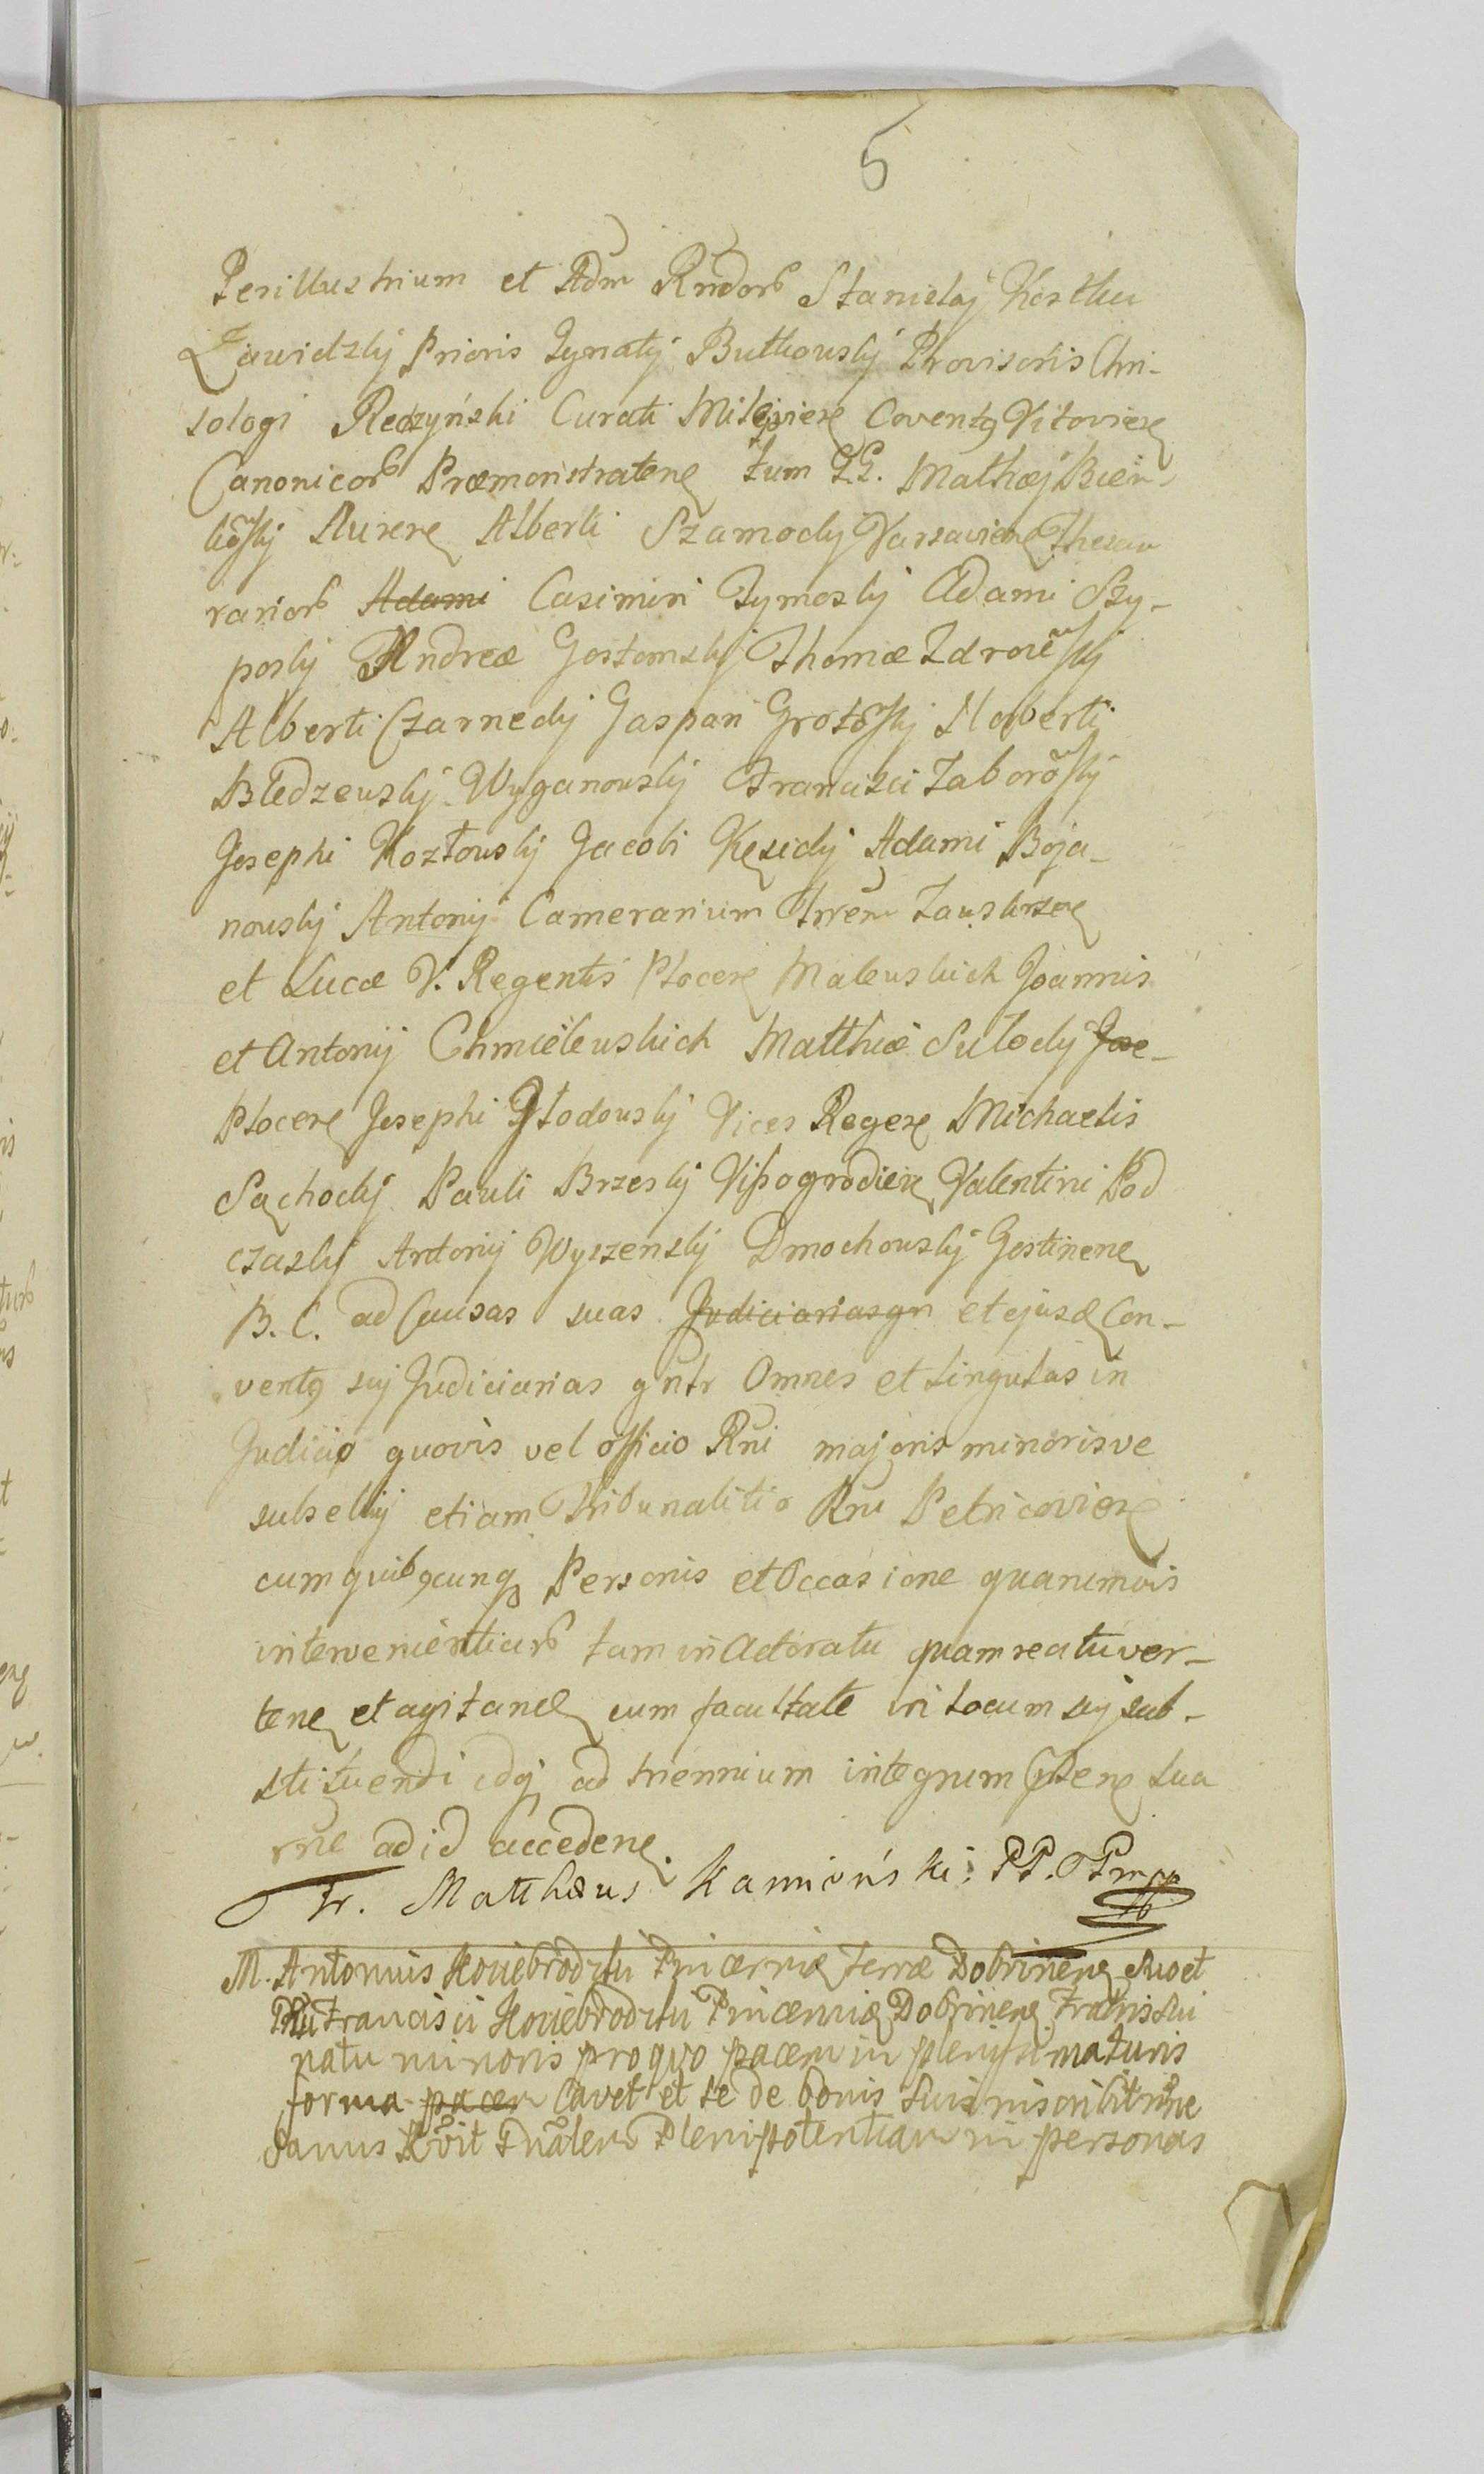 5
Perillustrium et Adm Rndorb Stanislaj Kostka
Zawidzkij Prioris Ignatij Butkouskij Provisoris Chri-
sologi Redzyński Curati Convent9 Vitoviens
Canonicorb Præmonstratens tum GG. Mathæj Bień-
kõskij Alberti Szamockij Varsaviens Thesau
rariorb Adami Casimiri Tymoskij Adami Szy-
poskij Andreæ Gostomskij Thomæ Zdroiẽskij
Alberti Czarneckij Gaspari Grotõskij Noberti
Bledzeuskij Wyganouskij Francisci Zaborõskij
Josephi Kozłouskij Jacobi Kęsickij Adami Boja-
nouskij Antonij Camerarium Trrem Zauskrzens
et Lucæ V. Regentis Plocens Maleuskich Joannis
et Antonij Chmieleuskich Matthiæ Sulockij Jose-
Plocens Josephi Głodouskij Vices Regens Michaelis
Sąchockij Pauli Brzeskij Vissogrodiens Valentini Pod
czaskij Antonij Wyszenskij Dmochouskij Gostinens
B. C. ad Causas suas Judiciarias gn et ejusd Con-
vent9 sui Judiciarias gnlr Omnes et singulas in
Judicio quovis vel officio Rni majoris minorisve
subselij etiam Tribunalitio Rni Petricoviens
cum quib9cunq Personis et Occasione quarumvis
intervenientiarb tam in Actoratu quam reatu ver-
tens et agitand cum facultate in locum sui sub-
stituendi idq ad triennium integrum Psens sua
rne ad id accedens.
Fr. Matthæus Kamiński: PP. OPm
M. Antonius Nouiebrodzki Pincernid Terræ Dobrinens Suo et
Francisci Nouiebrodzki Pincernid Dobrinens Fratris Sui
natu minoris pro quo pacem in plenis si maturis
forma pacem Cavet et se de bonis suis inscribit rne
Sanus Rõvit Gnãlem Plenipotentiam in personas